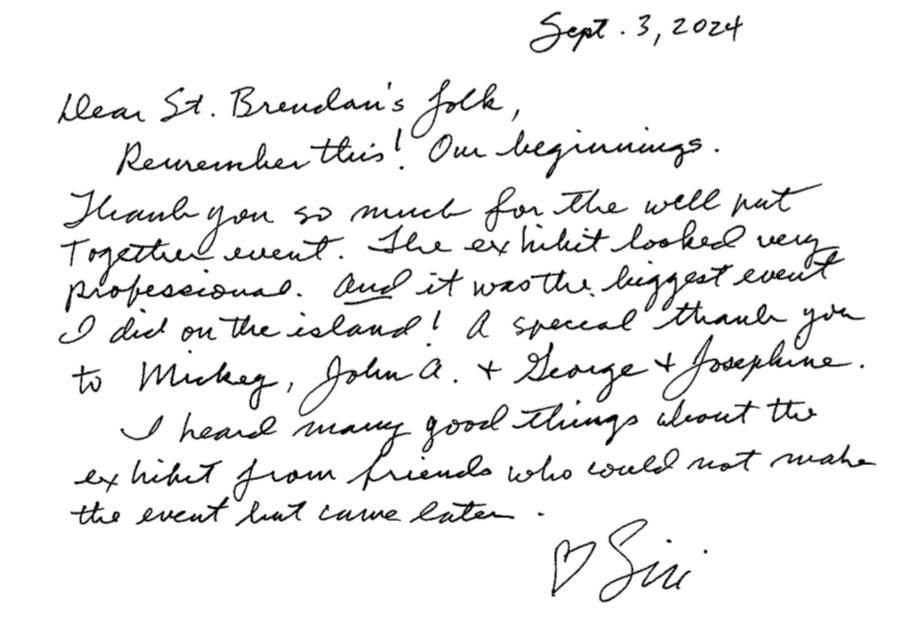 Sept. 3, 2024
Dear St. Brendan's folk,
Remember this! Our beginnings.
Thank you so much for the well put
together event. The exhibit looked very
professional. And it was the biggest event
I did on the island! A special thank you
to Mickey, John A. + George + Josephine.
I heard many good things about the
exhibit from friends who could not make
the event but came later.
♡ Siri